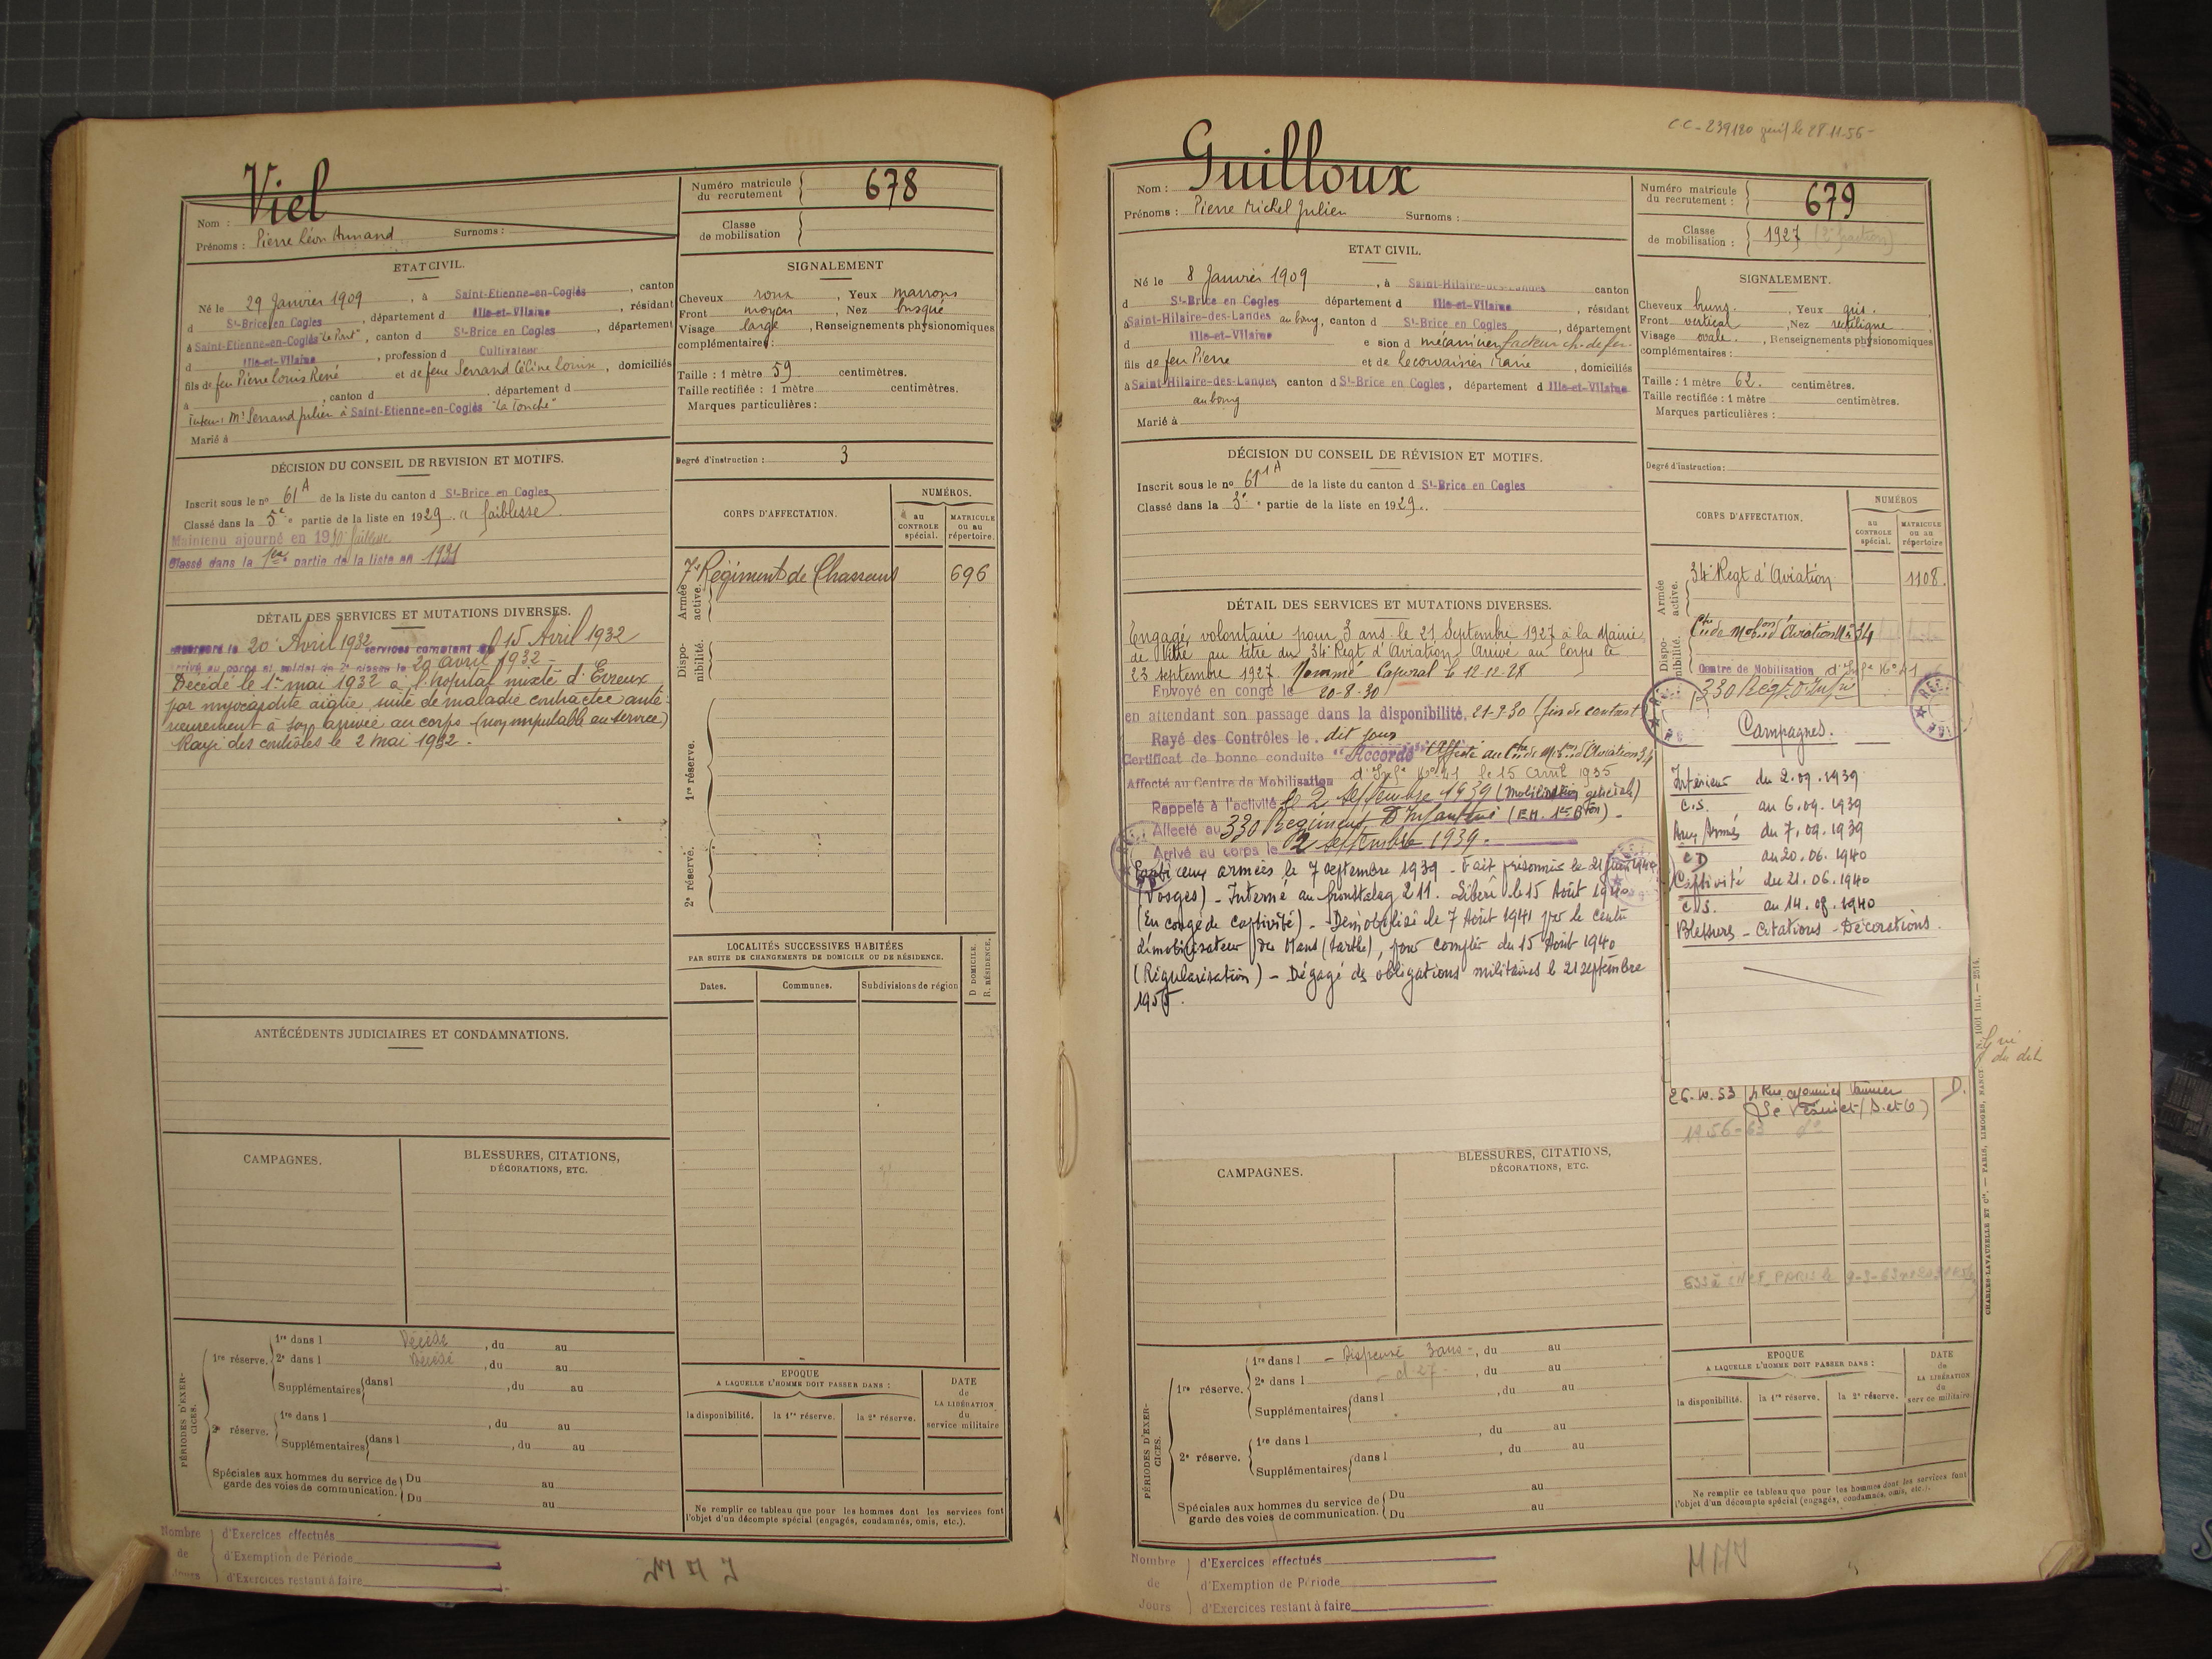 Viel
Nom :
Prénoms : Pierre Léon Armand Surnoms :
Numéro matricule du recrutement 678
Classe de mobilisation
ETAT CIVIL.
Né le 29 Janvier 1909, à Saint-Etienne-en-Coglès, canton
d St-Brice en Cogles, département d Ille-et-Vilaine, résidant
à Saint-Etienne-en-Coglès, canton d St-Brice en Cogles, département
d Ille-et-Vilaine, profession d Cultivateur
fils de feu Pierre Louis René et de feue Serrand Céline Louise, domiciliés
à , canton d , département d
Tuteur : Mr Serrand Julien à Saint-Etienne-en-Coglès "La Touche"
Marié à
SIGNALEMENT
Cheveux roux, Yeux marrons
Front moyen, Nez busqué
Visage large, Renseignements physionomiques
complémentaires :
Taille : 1 mètre 59 centimètres.
Taille rectifiée : 1 mètre centimètres.
Marques particulières :
Degré d'instruction : 3
DÉCISION DU CONSEIL DE REVISION ET MOTIFS.
Inscrit sous le no 61 A de la liste du canton d St-Brice en Cogles
Classé dans la 5e partie de la liste en 1929. faiblesse
Maintenu ajourné en 1930 faiblesse
Classé dans la 1ère partie de la liste en 1931
CORPS D'AFFECTATION.
NUMÉROS.
au CONTROLE spécial.
MATRICULE ou au répertoire.
Armée active.
7e Régiment de Chasseurs 696
Disponibilité.
1re réserve.
2e réserve.
DÉTAIL DES SERVICES ET MUTATIONS DIVERSES.
Incorporé le 20 Avril 1932 services comptent du 15 Avril 1932
Arrivé au corps et soldat de 2e classe le 20 avril 1932 -
Décédé le 1er mai 1932 à l'hôpital mixte d'Evreux
par myocardite aigüe, suite de maladie contractée anté-
rieurement à son arrivée au corps (non imputable au service)
Rayé des contrôles le 2 mai 1932.
LOCALITÉS SUCCESSIVES HABITÉES
PAR SUITE DE CHANGEMENTS DE DOMICILE OU DE RÉSIDENCE.
Dates. Communes. Subdivisions de région D DOMICILE. R. RÉSIDENCE.
ANTÉCÉDENTS JUDICIAIRES ET CONDAMNATIONS.
CAMPAGNES.
BLESSURES, CITATIONS, DÉCORATIONS, ETC.
PÉRIODES D'EXERCICES.
1re réserve.
1re dans l Décédé, du au
2e dans l Décédé, du au
Supplémentaires dans l , du au
2e réserve.
1re dans l , du au
Supplémentaires dans l , du au
Spéciales aux hommes du service de garde des voies de communication.
Du au
Du au
EPOQUE
A LAQUELLE L'HOMME DOIT PASSER DANS :
la disponibilité. la 1re réserve. la 2e réserve.
DATE de LA LIBÉRATION du service militaire
Ne remplir ce tableau que pour les hommes dont les services font
l'objet d'un décompte spécial (engagés, condamnés, omis, etc.).
Nombre de Jours
d'Exercices effectués
d'Exemption de Période
d'Exercices restant à faire
Guilloux
Nom :
Prénoms : Pierre Michel Julien Surnoms :
Numéro matricule du recrutement : 679
Classe de mobilisation : 1927 (2e fraction)
ETAT CIVIL.
Né le 8 Janvier 1909, à Saint-Hilaire-des-Landes canton
d St-Brice en Cogles département d Ille-et-Vilaine, résidant
à Saint-Hilaire-des-Landes au bourg, canton d St-Brice en Cogles, département
d Ille-et-Vilaine e sion d mécanicien facteur ch. de fer
fils de feu Pierre et de Lecorvaisier Marie, domiciliés
à Saint-Hilaire-des-Landes, canton d St-Brice en Cogles, département d Ille-et-Vilaine
au bourg
Marié à
SIGNALEMENT.
Cheveux bruns, Yeux gris.
Front vertical, Nez rectiligne
Visage ovale., Renseignements physionomiques
complémentaires :
Taille : 1 mètre 62. centimètres.
Taille rectifiée : 1 mètre centimètres.
Marques particulières :
Degré d'instruction :
DÉCISION DU CONSEIL DE RÉVISION ET MOTIFS.
Inscrit sous le no 61 A de la liste du canton d St-Brice en Cogles
Classé dans la 3e partie de la liste en 1929.
CORPS D'AFFECTATION.
NUMÉROS
au CONTROLE spécial.
MATRICULE ou au répertoire
Armée active.
34e Regt d'Aviation 1108.
Disponibilité.
Ctre de Mobon d'Aviation No 34
Centre de Mobilisation d'Infie No 41
330 Regt d'Infie
DÉTAIL DES SERVICES ET MUTATIONS DIVERSES.
Engagé volontaire pour 3 ans le 21 Septembre 1927 à la Mairie
de Vitré au titre du 34e Regt d'Aviation Arrivé au Corps le
23 septembre 1927. Nommé Caporal le 12-12-28
Envoyé en congé le 20-8-30
en attendant son passage dans la disponibilité, 21-9-30 (fin de contrat)
Rayé des Contrôles le dit jour
Certificat de bonne conduite "Accordé" Affecté au Ctre de Mobon d'Aviation 34
Affecté au Centre de Mobilisation d'Infie No 41 le 15 avril 1935
Rappelé à l'activité le 2 septembre 1939 (Mobilisation générale)
Affecté au 330 Régiment d'Infanterie (EM. 1er Bton).
Arrivé au corps le 2 septembre 1939.
Parti aux armées le 7 septembre 1939 - Fait prisonnier le 21 juin 1940
(Vosges) - Interné au frontstalag 211. Libéré le 15 Août 1940
(En congé de captivité) - Démobilisé le 7 Août 1941 par le centre
démobilisateur du Mans (Sarthe), pour compter du 15 Août 1940
(Régularisation) - Dégagé des obligations militaires le 21 septembre
1955.
Campagnes.
Intérieur du 2.09.1939
C.S. au 6.09.1939
Aux Armées du 7.09.1939
CD au 20.06.1940
Captivité du 21.06.1940
C.S. au 14.08.1940
Blessures - Citations - Décorations.
Le Vésinet (S. et O) D.
1956-63 do
CAMPAGNES.
BLESSURES, CITATIONS, DÉCORATIONS, ETC.
PÉRIODES D'EXERCICES.
1re réserve.
1re dans l - Dispensé 3 ans -, du au
2e dans l - d 27 -, du au
Supplémentaires dans l , du au
2e réserve.
1re dans l , du au
Supplémentaires dans l , du au
Spéciales aux hommes du service de garde des voies de communication.
Du au
Du au
EPOQUE
A LAQUELLE L'HOMME DOIT PASSER DANS :
la disponibilité. la 1re réserve. la 2e réserve.
DATE de LA LIBÉRATION du service militaire
Ne remplir ce tableau que pour les hommes dont les services font
l'objet d'un décompte spécial (engagés, condamnés, omis, etc.).
CHARLES-LAVAUZELLE ET Cie. — PARIS, LIMOGES, NANCY
Nombre de Jours
d'Exercices effectués
d'Exemption de Période
d'Exercices restant à faire